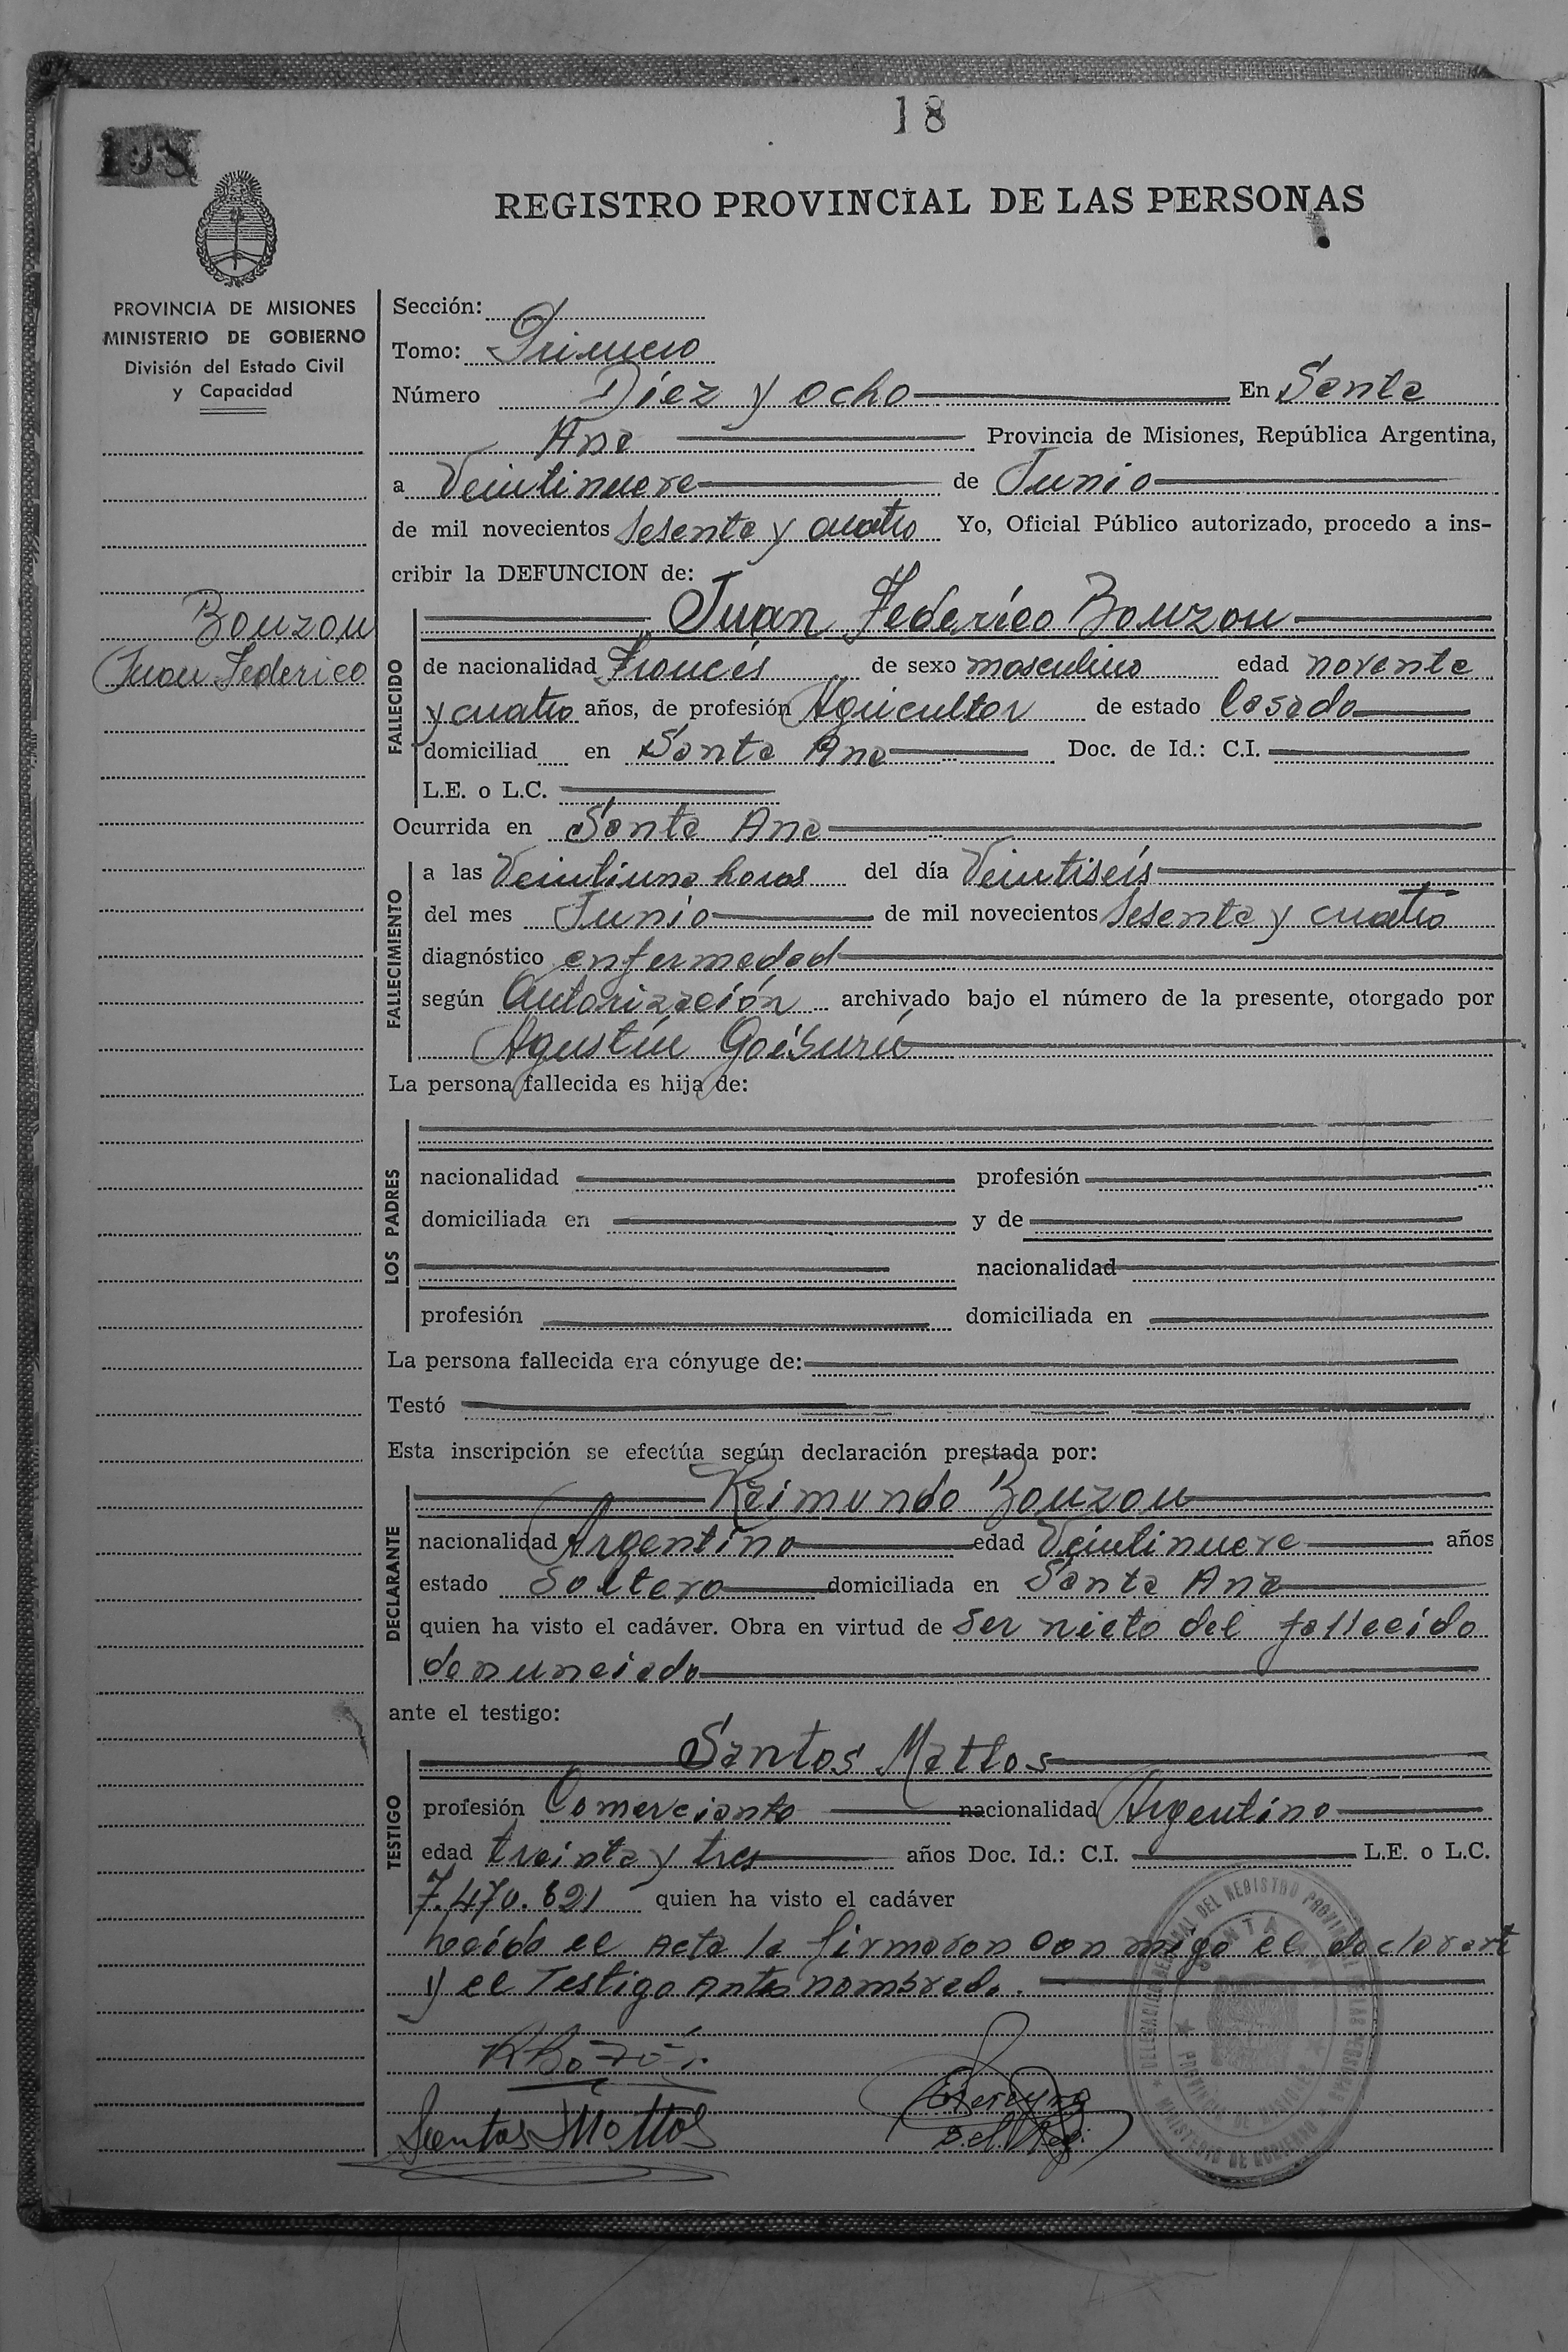 18
198
REGISTRO PROVINCIAL DE LAS PERSONAS
PROVINCIA DE MISIONES
MINISTERIO DE GOBIERNO
División del Estado Civil
y Capacidad
Bouzou
Juan Federico
Sección:
Tomo: Primero
Número Diez y ocho En Santa
Ana Provincia de Misiones, República Argentina,
a Veintinueve de Junio
de mil novecientos sesenta y cuatro Yo, Oficial Público autorizado, procedo a ins-
cribir la DEFUNCION de:
Juan Federico Bouzou
FALLECIDO
de nacionalidad Francés de sexo masculino edad noventa
y cuatro años, de profesión Agricultor de estado Casado
domiciliad en Santa Ana Doc. de Id.: C.I.
L.E. o L.C.
Ocurrida en Santa Ana
FALLECIMIENTO
a las Veintiuna horas del día Veintiseis
del mes Junio de mil novecientos sesenta y cuatro
diagnóstico enfermedad
según Autorización archivado bajo el número de la presente, otorgado por
Agustín Goiburú
La persona fallecida es hija de:
LOS PADRES
nacionalidad profesión
domiciliada en y de
nacionalidad
profesión domiciliada en
La persona fallecida era cónyuge de:
Testó
Esta inscripción se efectúa según declaración prestada por:
Raimundo Bouzou
DECLARANTE
nacionalidad Argentino edad Veintinueve años
estado Soltero domiciliada en Santa Ana
quien ha visto el cadáver. Obra en virtud de ser nieto del fallecido
denunciado
ante el testigo:
Santos Mattos
TESTIGO
profesión Comerciante nacionalidad Argentino
edad treinta y tres años Doc. Id.: C.I. L.E. o L.C.
7.470.821 quien ha visto el cadáver
Leída el Acta la firmaron con migo el declarant
y el Testigo antes nombrado.
Santos Mattos
DELEGACION REGIONAL DEL REGISTRO PROVINCIAL DE LAS PERSONAS
SANTA ANA
PROVINCIA DE MISIONES
MINISTERIO DE GOBIERNO